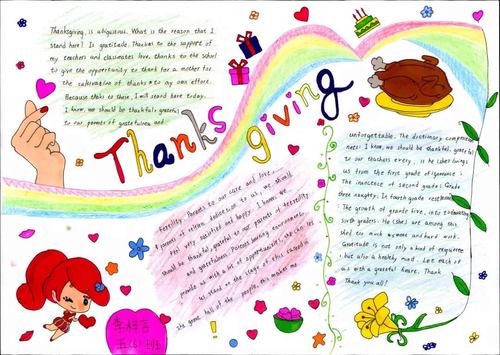 Thanksgiving, is ubiquitous. What is the reason that I
stand here? Is gratitude. Thanks to the support of
my teachers and classmates love, thanks to the school
to give the opportunity to thank for a mother for
the cultivation of thanks to my own effort.
Because thanks to these, I will stand here today.
I know, we should be thankful, grateful
to our parents of gratefulness and
Thanks giving
Fertility. Parents to our care and love,
parents of
feel very satisfied and happy. I know, we
should be thankful, grateful to our parents of fertility
and gratefulness. Parents working environment,
people us with a lot of
we stand on the stage of this
the game hall of the people this makes me
unforgettable. The dictionary
ness: I know, we should be thankful, grateful
to our teachers every, is he (she) brings
us from the first grade of ignorance:
The innocence of second grade; Grade
three naughty; In fourth grade
The growth of grade five, into the
sixth graders. He (she) are among this
shed too much sweat and hard work.
Gratitude is not only a kind of
but also a healthy mind. Let each of
us with a grateful heart. Thank
Thank you all!
李梓言
五(6)班